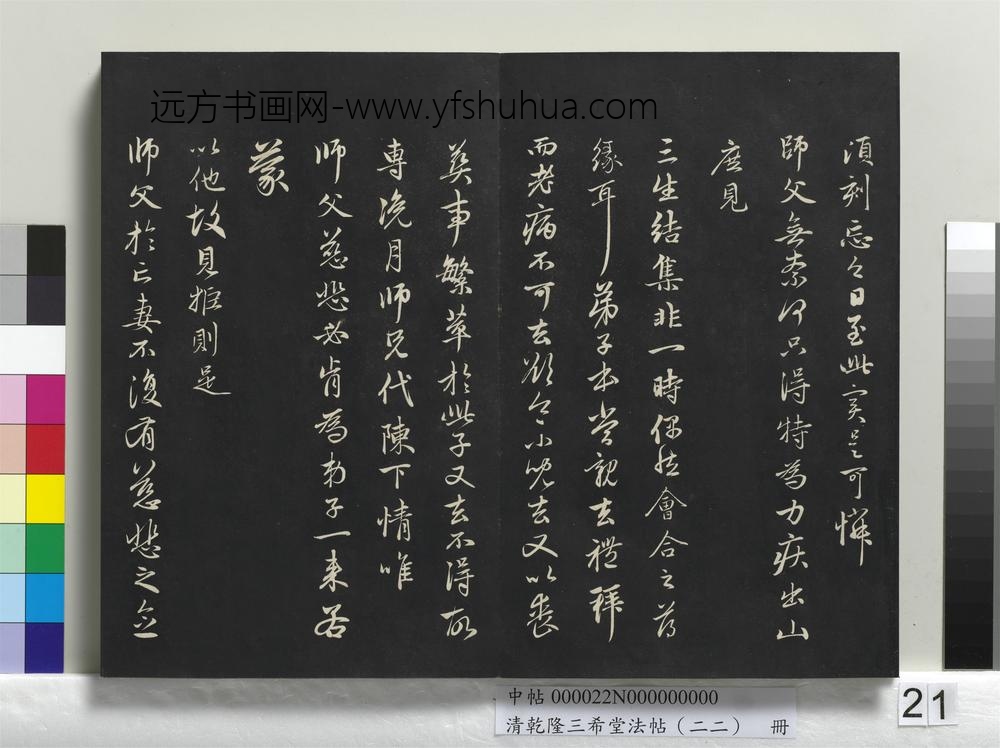 远方书画网-www.yfshuhua.com
頃刻忘今日至此實是可憐
師父無奈何只得特為力疾出山
庶見
三生結集非一時偶然會合之薄
緣耳弟子本當親去禮拜
而老病不可去欲令小兒去又以喪
葬事繁萃於此子又去不得故
專浼月師兄代陳下情唯
師父慈悲必肯為弟子一來若
蒙
以他故見拒則是
師父於亡妻不復有慈悲之念
中帖 000022N000000000
清乾隆三希堂法帖（二二） 冊
21